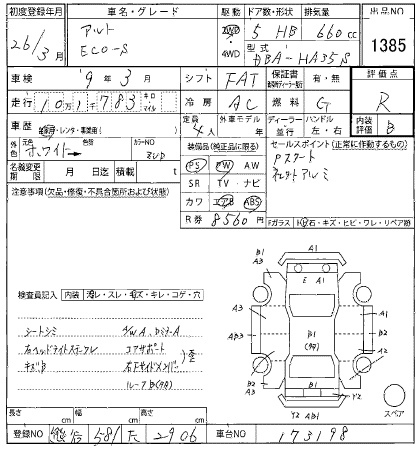 初度登録年月 車名・グレード 駆動 ドア数・形状 排気量 出品NO
26/3月 アルト ECO-S 2WD・4WD 5 HB 660cc 1385
型式 DBA-HA35S
車検 9年3月 シフト FAT 保証書 有・無 評価点
走行 10万1千783 キロ・マイル 冷房 AC 燃料 G R
車歴 自家用・レンタ・事業用( ) 定員 4人 外車モデル ディーラー・並行 ハンドル 左・右 内装評価 B
外色 元色 ホワイト→ 色替 カラーNO ZVD 装備品(純正品に限る) セールスポイント(正常に作動するもの)
名義変更期限 月 日迄 積載 t PS PW AW Pスタート
注意事項(欠品・修復・不具合箇所および状態) SR TV ナビ 社外アルミ
カワ エアB ABS
R券 8560円 Fガラス ト石・キズ・ヒビ・ワレ・リペア跡
A1
E A1
B1 A3 A3 B1
検査員記入 内装 汚レ・スレ・キズ・キレ・コゲ・穴
シートシミ A/W A、
右ヘッドライト コアサポート AB3 B1 A2 B1
キズB 右下サイドメンバー A3 A2
ルーフB Y2
Y2 AB1 スペア
長さ cm 幅 cm 高さ cm
登録NO 581 2906 車台NO 173198